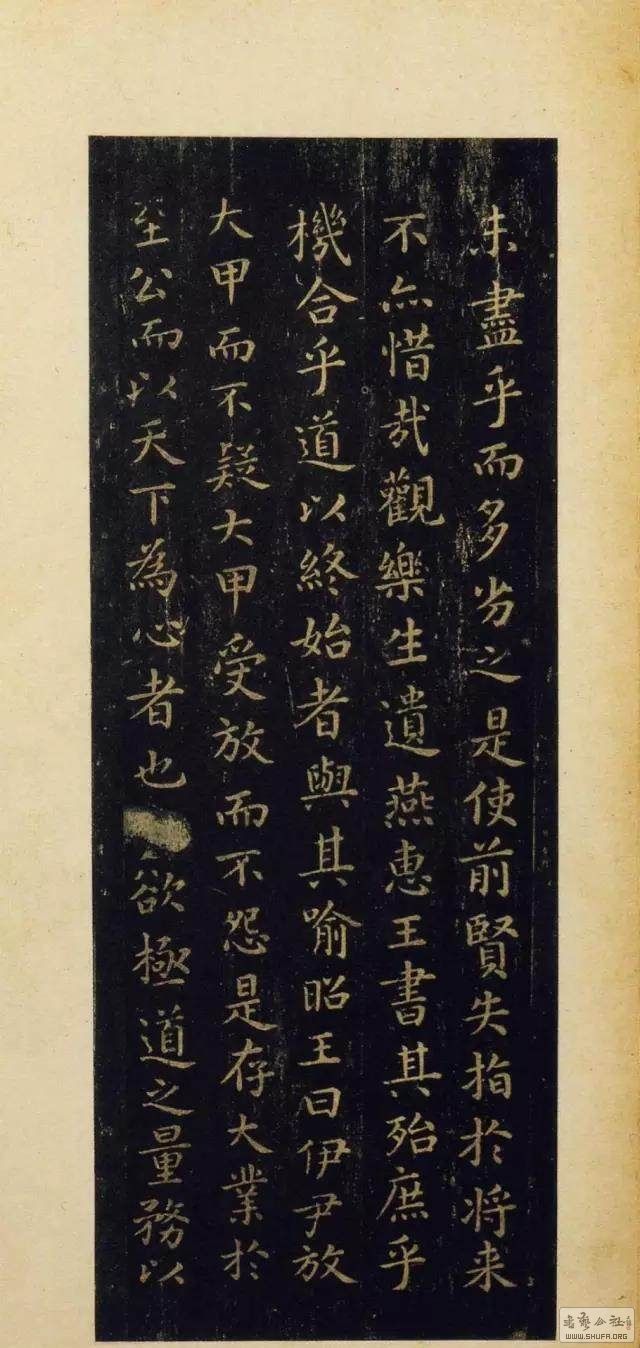 未盡乎而多劣之是使前賢失指於将来
不亦惜哉觀樂生遺燕惠王書其殆庶乎
機合乎道以終始者與其喻昭王曰伊尹放
大甲而不疑大甲受放而不怨是存大業於
至公而以天下為心者也欲極道之量務以
WWW.SHUFA.ORG